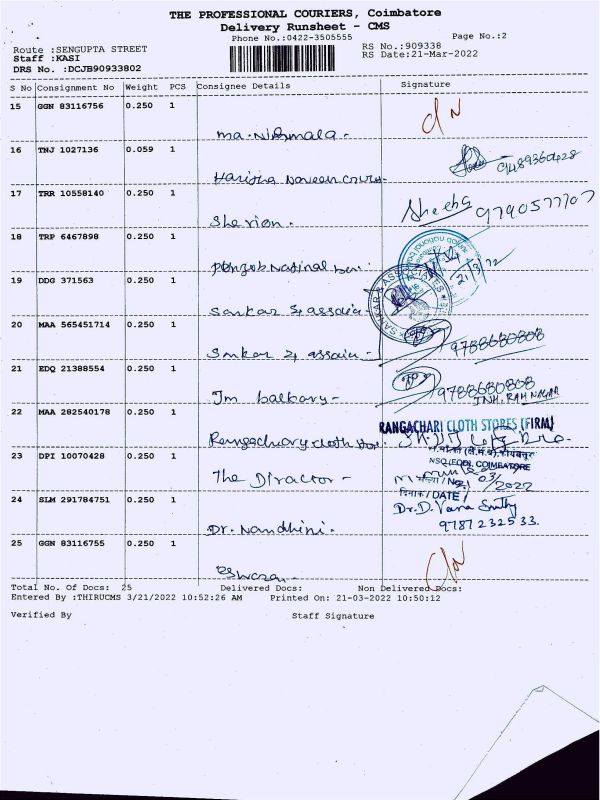 THE PROFESSIONAL COURIERS, Coimbatore
Delivery Runsheet - CMS
Phone No.:0422-3505555
Page No.:2
Route :SENGUPTA STREET
RS No.:909338
Staff :KASI
RS Date:21-Mar-2022
DRS No. :DCJB90933802
S No Consignment No Weight PCS Consignee Details Signature
15 GGN 83116756 0.250 1
Ma. Nirmala -
16 TNJ 1027136 0.059 1
Harisha Naveen
17 TRR 10558140 0.250 1
Sherion. 9790577707
18 TRP 6467898 0.250 1
21/3/22
19 DDG 371563 0.250 1
SANKAR & ASSOCIATES
Sankar & associa
20 MAA 565451714 0.250 1
Sankar & associa - 9788680808
21 EDQ 21388554 0.250 1
9788680808
Jm bakary - JNH. RAM NAGAR
22 MAA 282540178 0.250 1
RANGACHARI CLOTH STORES (FIRM)
Rangachary cloth
23 DPI 10070428 0.250 1
NSO (FOD), COIMBATORE
The Diractor -
03/2022
24 SLM 291784751 0.250 1
दिनांक / DATE
Dr. Nandhini. 9787232533.
25 GGN 83116755 0.250 1
Eswaran
Total No. Of Docs: 25 Delivered Docs: Non Delivered Docs:
Entered By :THIRUCMS 3/21/2022 10:52:26 AM Printed On: 21-03-2022 10:50:12
Verified By Staff Signature